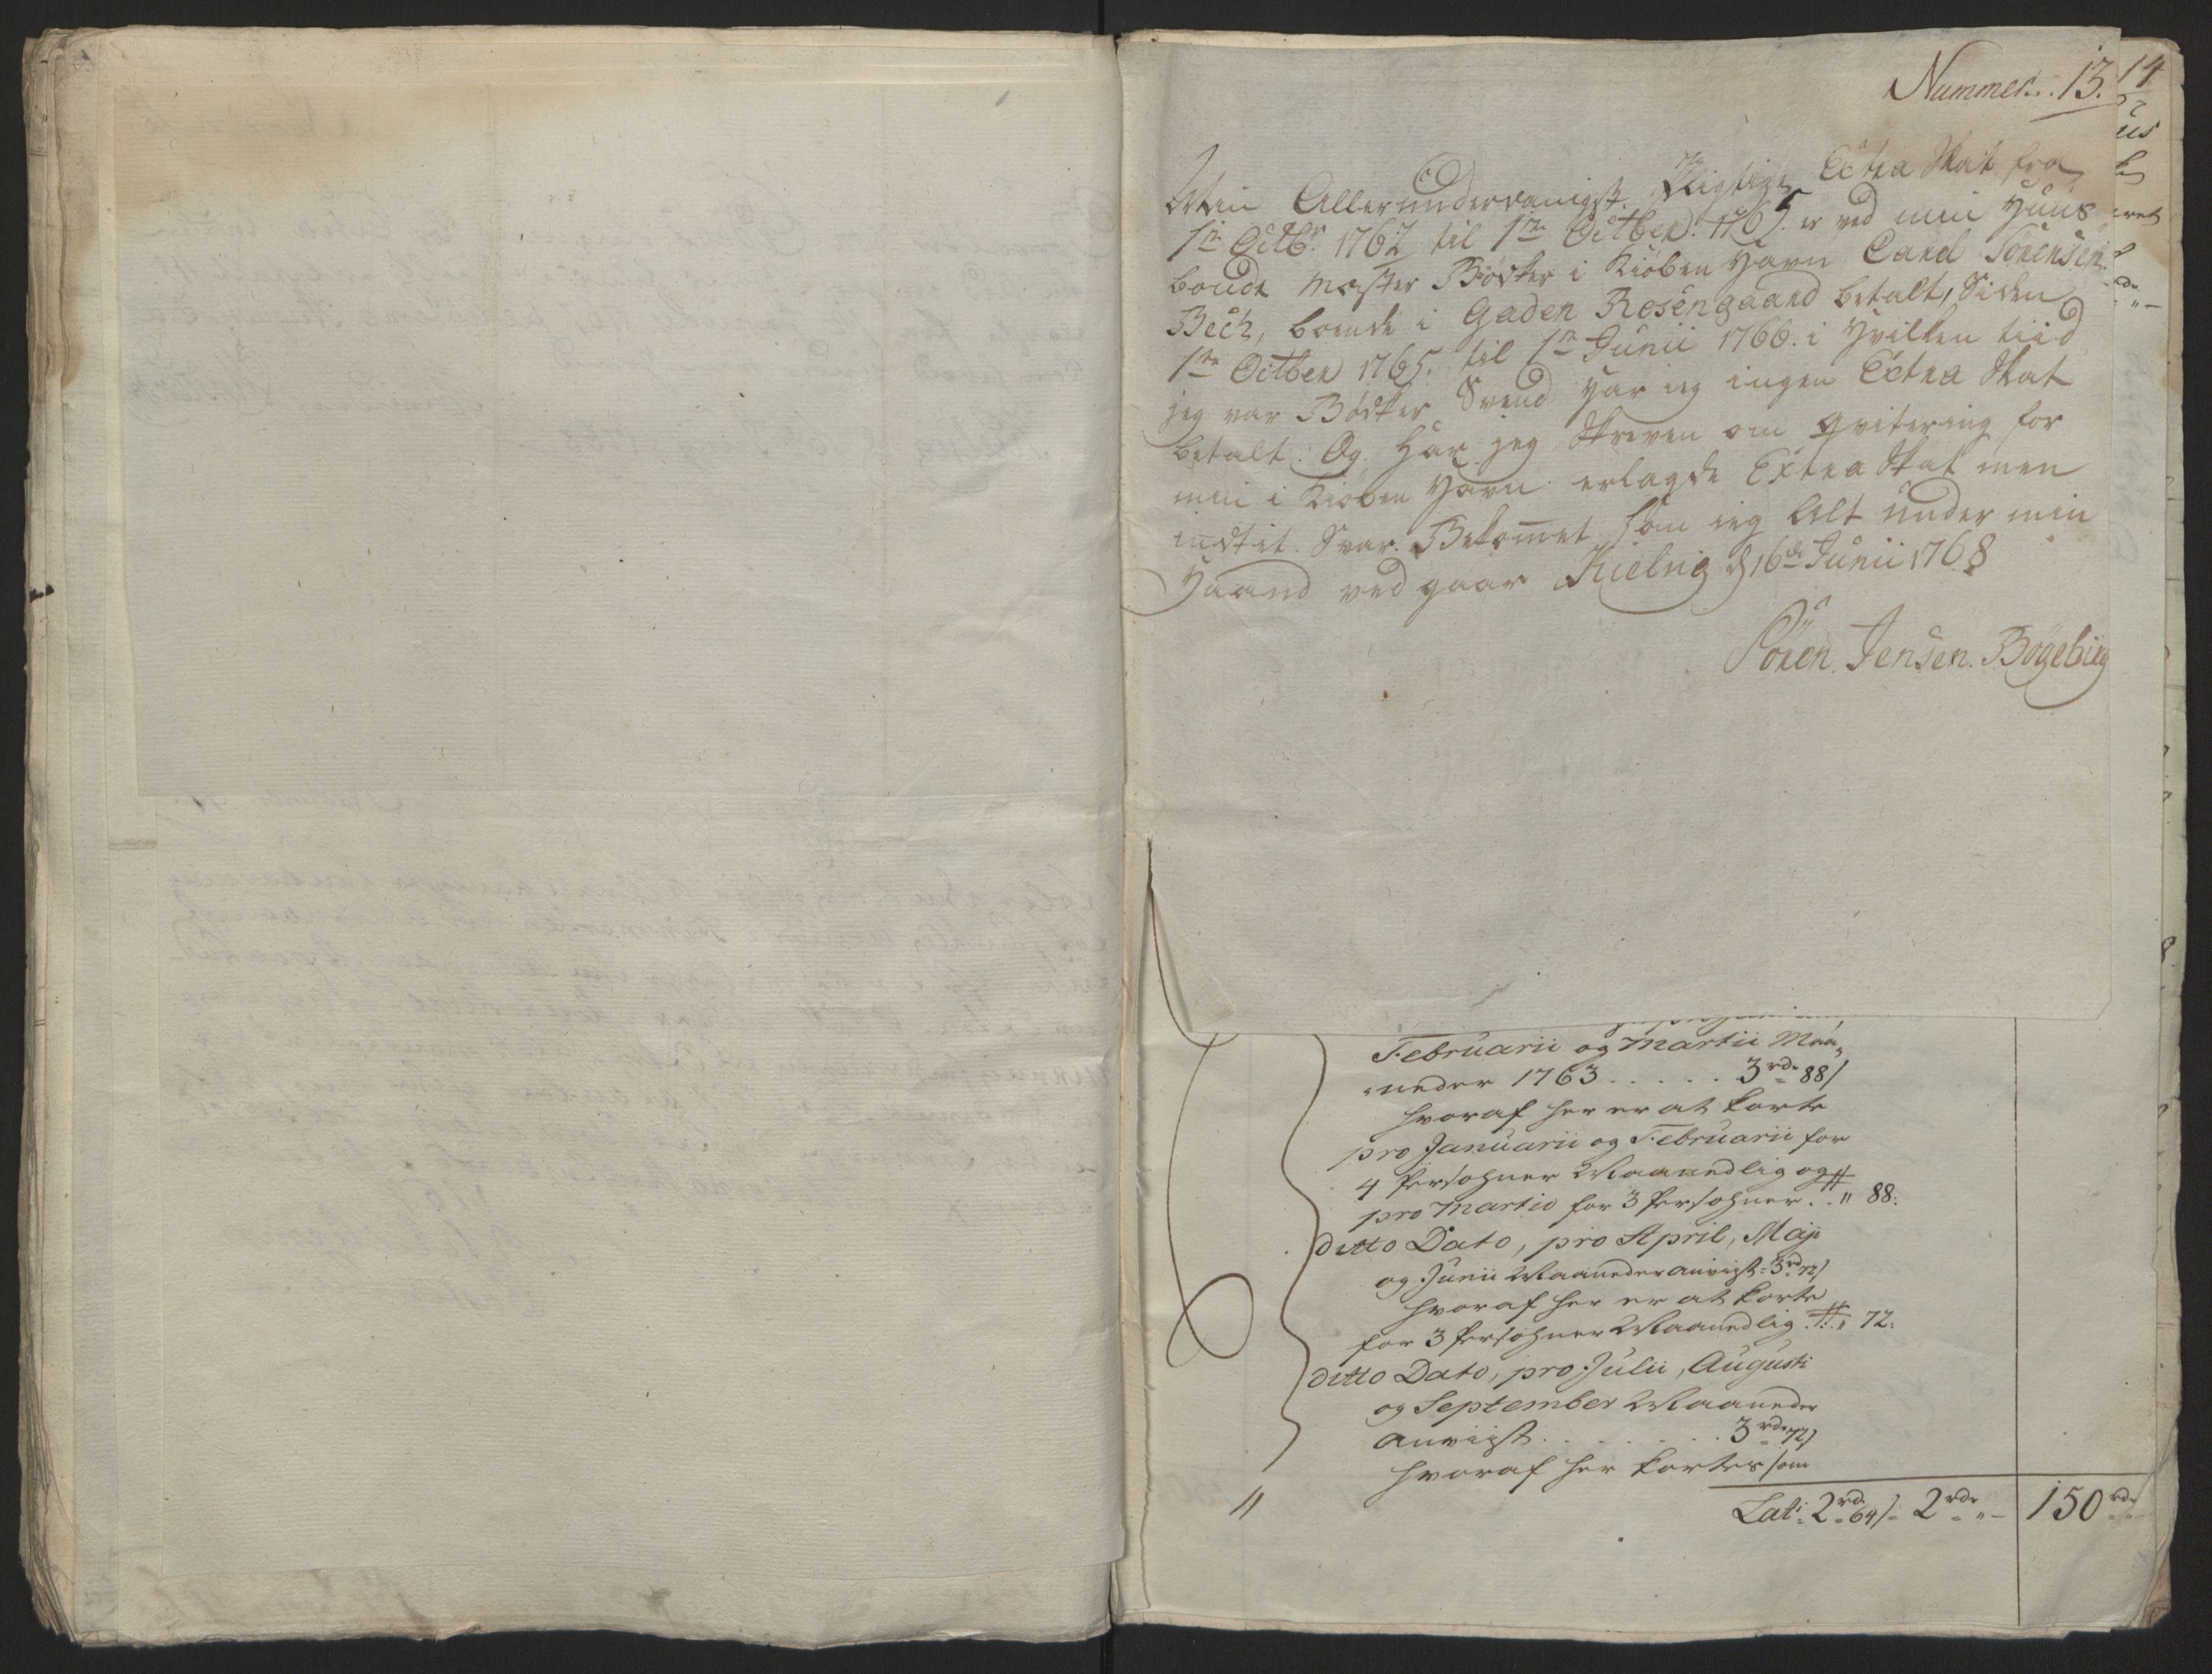 Nummer: 13.
14
Min Allerunderdanigst Pligtige Extra Skat fra
1te Octbr. 1762 til 1te Octber. 1765. er ved min Huus
bonde Mester Bødker i Kiøben Havn Carel Sörensen
Bech, boende i Gaden Rosengaard betalt, Siden
1te Octber 1765. til 1te Junii 1766. i Hvilken tiid
jeg var Bødker Svend Har ieg ingen Extra Skat
betalt. Og Har jeg Skreven om Qvitering for
min i Kiøben Havn erlagde Extra Skat men
indtet Svar Bekommet, som ieg Alt under min
Haand ved gaar Kielvig d 16de Junii 1768
Sören Jensen Bögebierg
Februarii og Martii Maa„
„neder 1763 . . . . . 3 rdr 88/
hvoraf her er at korte
pro Januarii og Februarii for
4 Persohner Maanedlig og
pro Martio for 3 Persohner . . " 88:
ditto Dato, pro April, Maji
og Junii Maaneder anviist = 3 rd 72/
hvoraf her er at korte
for 3 Persohner Maanedlig . " 72:
ditto Dato, pro Julii, Augusti
og September Maaneder
anviist . . . . . . 3 rdr 72/
hvoraf her kortes som
Lat: 2 rd 64/ = 2 rdr " — 150 rdr